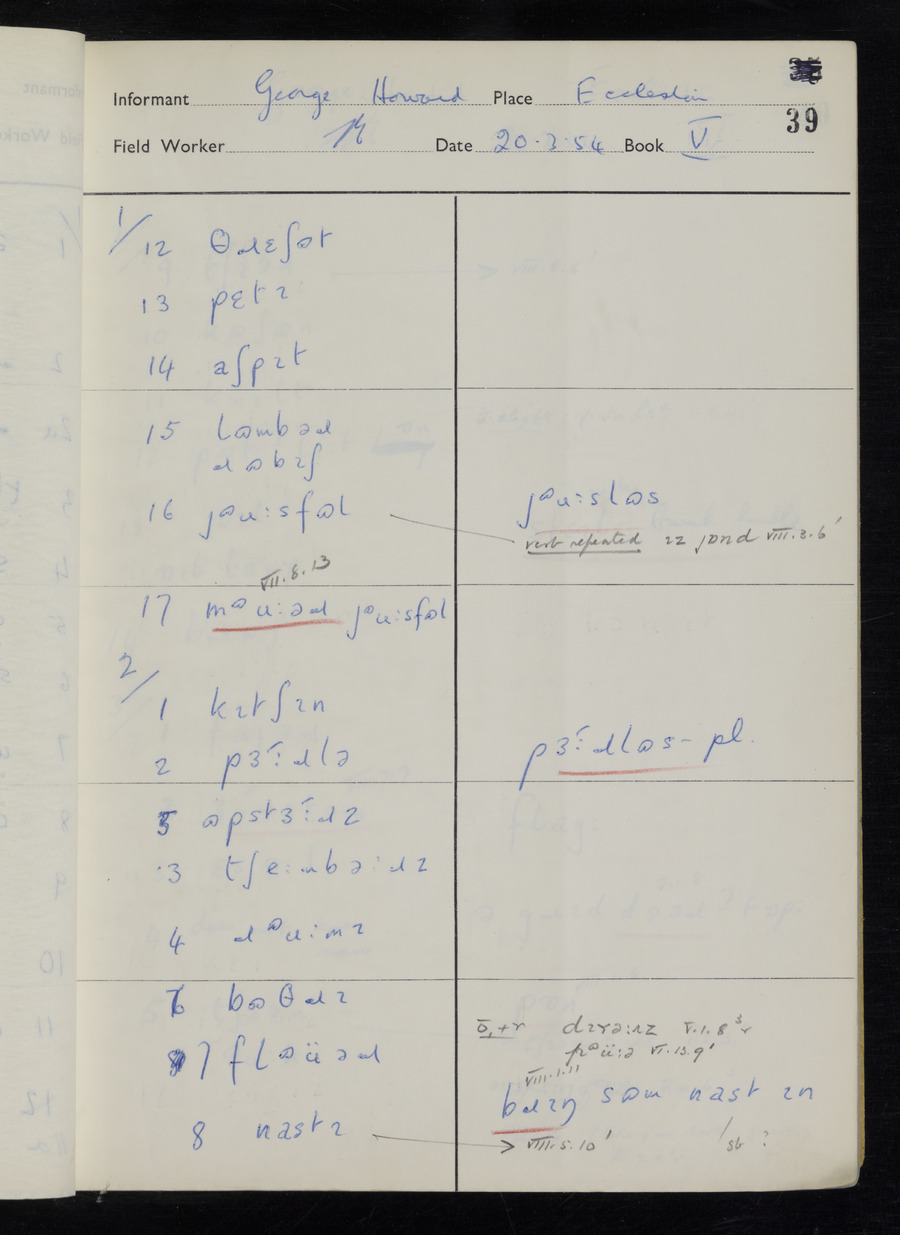 39
Informant George Howard Place Eccleston
Field Worker Date 20.3.54 Book V
1/
12 θɹɛʃət
13 pɛtɪ
14 aʃpɪt
15 lɷmbəɹ
ɹɷbɪʃ
16 jᵊʉ:sfəl
jᵊʉ:sləs
verb repeated ɪz jɒnd VIII.3.6'
VII.8.13
17 mᵊʉ:əɹ jᵊʉ:sfəl
2/
1 kɪtʃɪn
2 pɜ:ɹlə
pɜ:ɹləs - pl.
5 ɷpstɜ:ɹz
3 tʃe:mbə:ɹz
4 ɹᵊʉ:mz
6 bɒθɹɪ
7 flɷüəɹ
8 nastɪ
ō,+r dɪɾə:ɹz V.1.8
VI.13.9'
VIII.1.11
bɹɪŋ sɷm nast ɪn
VIII.5.10'